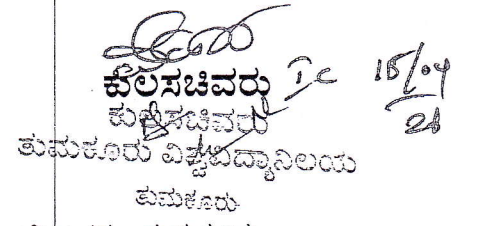 ಕುಲಸಚಿವರು I/c 15/04
21
ಕುಲಸಚಿವರು
ತುಮಕೂರು ವಿಶ್ವವಿದ್ಯಾನಿಲಯ
ತುಮಕೂರು